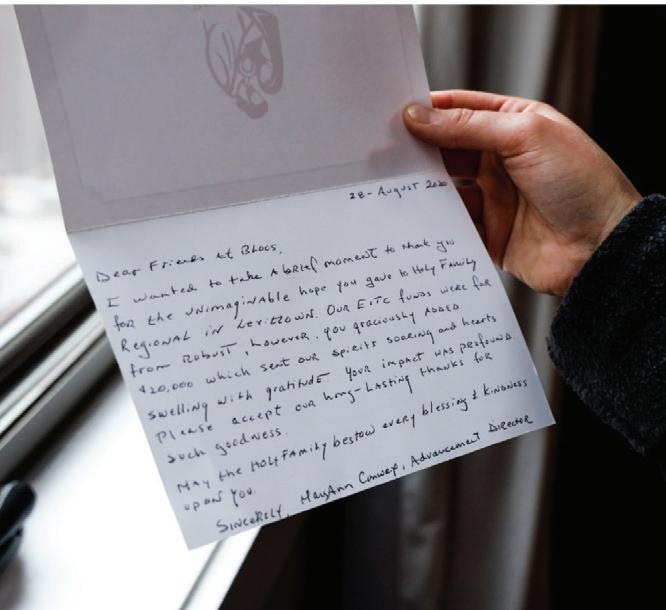 28-August 2020
Dear Friends at BLOCS,
I wanted to take a brief moment to thank you
for the unimaginable hope you gave to Holy Family
Regional in Levittown. Our EITC funds were far
from robust, however, you graciously added
$20,000 which sent our spirits soaring and hearts
swelling with gratitude. Your impact was profound.
Please accept our long-lasting thanks for
such goodness.
May the Holy Family bestow every blessing & kindness
upon you.
Sincerely, MaryAnn Conway, Advancement Director